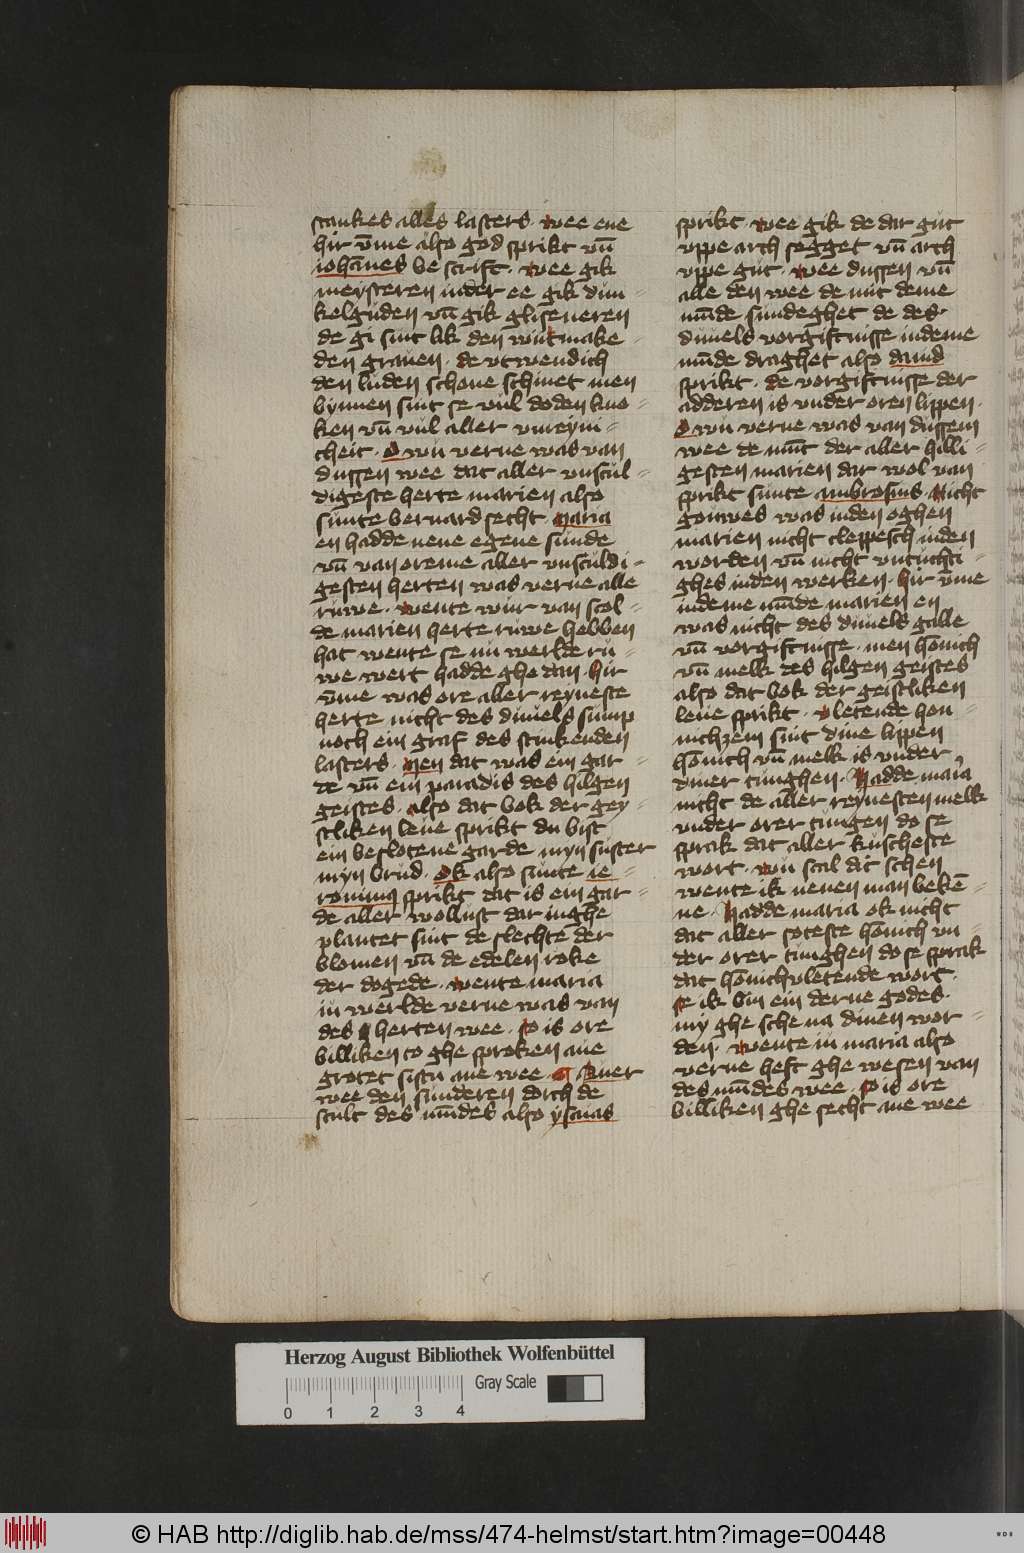 stankes alles lasters · wee ene
hir v̄me also god sprikt vn̄
iohānes be scrift · wee gik
meysteren inder ee gik dun
kelguden vn̄ gik gliseneren
de gi sint lik den wit make
den grauen · de vtwendich
den luden schone schinet men
bynnen sint se vul doden kno
ken vn̄ vul aller vnreyni
cheit · O wu verne was van
dussen wee dat aller vnscul
digeste herte marien also
sunte bernard secht · Maria
en hadde nene egene sunde
vn̄ van oreme aller vnsculdi
gesten herten was verne alle
ruwe · wente wur van scol
de marien herte ruwe hebben
hat wente se nu werlde ru
we wert hadde ghe dan · hir
v̄me was ore aller reyneste
herte nicht des duuels sump
noch ein graf des stinkenden
lasters · Men dat was ein gar
de vn̄ ein paradis des hilgen
geistes · also dat bok der gey
stliken leue sprikt du bist
ein beslotene garde myn suster
myn brud · Ok also sunte ie
ronimꝰ sprikt dat is ein gar
de aller wollust dar inghe
plantet sint de slechte der
blomen vn̄ de edelen roke
der dogede · wente maria
in werlde verne was van
des herten wee · so is ore
billiken to ghe sproken aue
grotet sistu ane wee · ¶ Auer
wee den sunderen dorch de
scult des mūdes also ysaias
sprikt · wee gik de dar gut
vppe arch segget vn̄ arch
vppe gut · wee dussen vn̄
alle den wee de mit deme
mūde sundeghet de des
duuels vorgiftnisse indeme
mūde draghet also dauid
sprikt · de vorgiftnisse der
adderen is vnder oren lippen ·
O wu verne was van dussem
wee de mūt der aller hilli
gesten marien dar wol van
sprikt sunte ambrosius · Nicht
gouwes was inden oghen
marien nicht cleppesch inden
worden vn̄ nicht vntuchti
ghes inden werken · hir v̄me
indeme mūde marien en
was nicht des duuels galle
vn̄ vorgiftnisse · men honich
vn̄ melk des hilgen geistes
also dat bok der geistliken
leue sprikt · vletende hon
nichzem sint dine lippen
honich vn̄ melk is vnder
diner tunghen · Hadde maria
nicht de aller reynesten melk
vnder orer tungen do se
sprak dat aller kuscheste
wort · wu scal dit schen
wente ik nenen man bekē
ne · Hadde maria ok nicht
dat aller soteste honich vn
der orer tunghen do se sprak
dat honichvletende wort ·
se ik bin ein derne godes ·
my ghe sche na dinen wor
den · wente in maria also
verne heft ghe wesen van
des mūdes wee · so is ore
billiken ghe secht ane wee
Herzog August Bibliothek Wolfenbüttel
Gray Scale
0 1 2 3 4
© HAB http://diglib.hab.de/mss/474-helmst/start.htm?image=00448